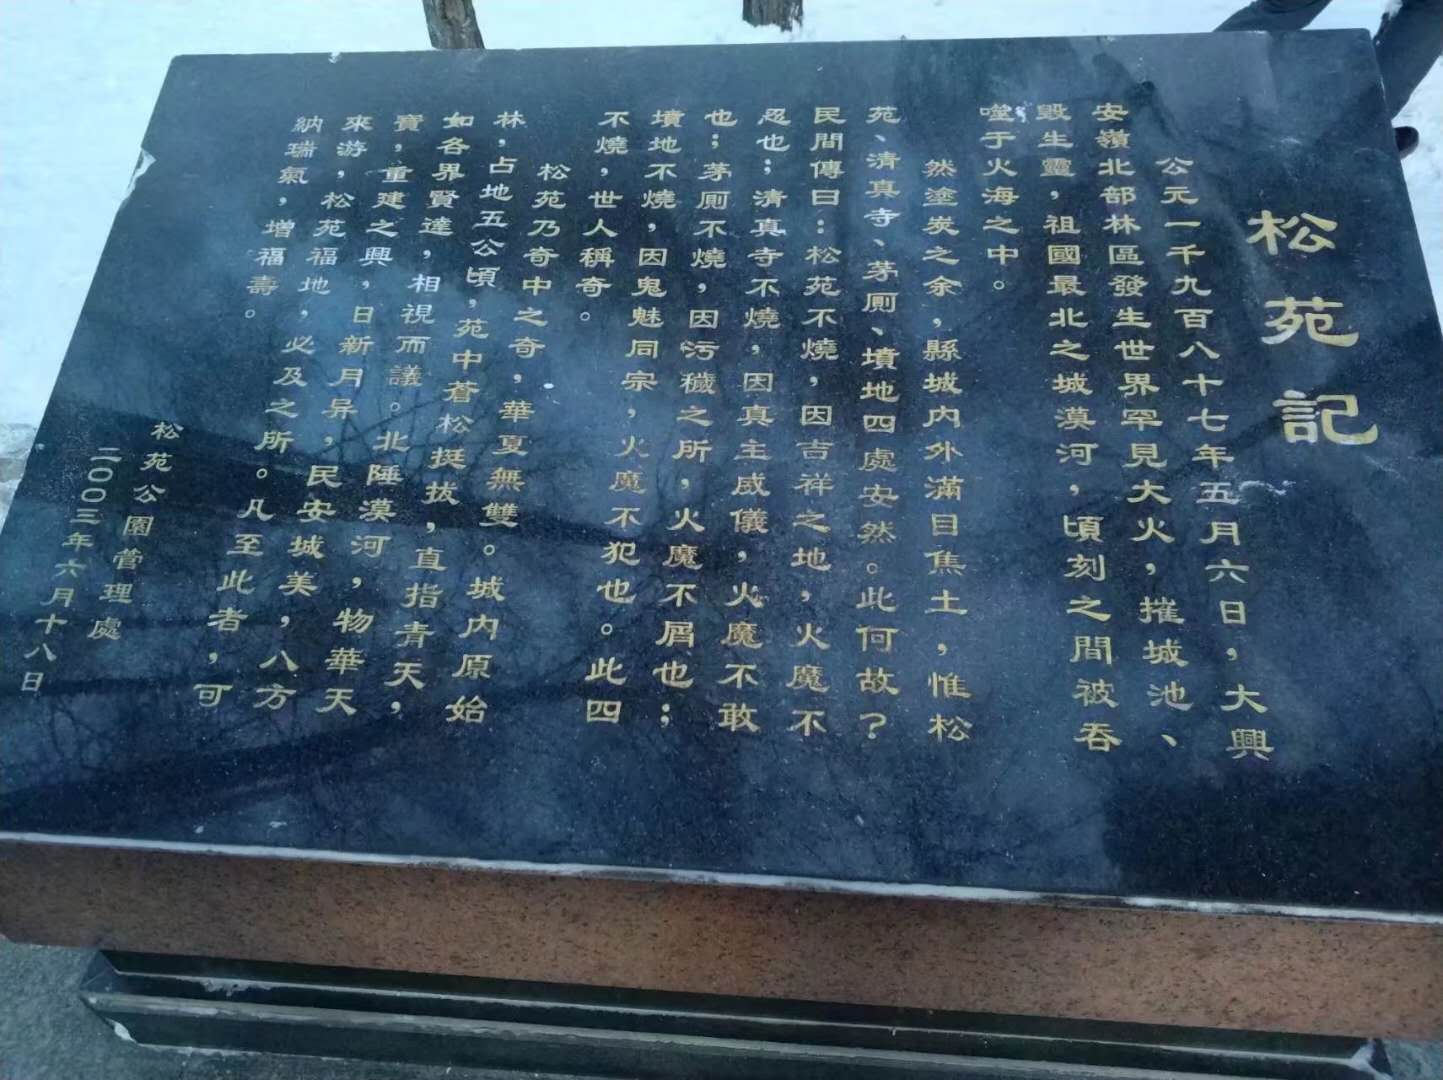 松苑記
公元一千九百八十七年五月六日，大興
安嶺北部林區發生世界罕見大火，摧城池、
毀生靈，祖國最北之城漠河，頃刻之間被吞
噬于火海之中。
然塗炭之余，縣城内外滿目焦土，惟松
苑、清真寺、茅厠、墳地四處安然。此何故？
民間傳曰：松苑不燒，因吉祥之地，火魔不
忍也；清真寺不燒，因真主威儀，火魔不敢
也；茅厠不燒，因污穢之所，火魔不屑也；
墳地不燒，因鬼魅同宗，火魔不犯也。此四
不燒，世人稱奇。
松苑乃奇中之奇，華夏無雙。城内原始
林，占地五公頃，苑中蒼松挺拔，直指青天，
如各界賢達，相視而議。北陲漠河，物華天
寶，重建之興，日新月异，民安城美，八方
來游，松苑福地，必及之所。凡至此者，可
納瑞氣，增福壽。
松苑公園管理處
二〇〇三年六月十八日